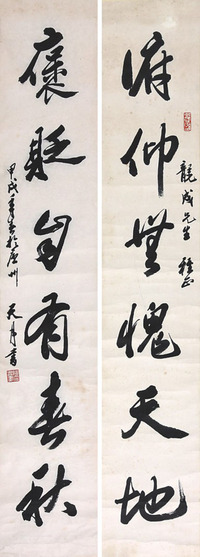 俯仰無愧天地
龍成先生 雅正
褒貶自有春秋
甲戌年春於廣州